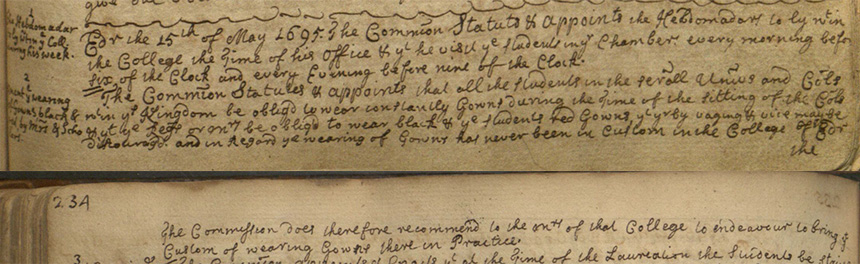 Edr the 15th of May 1695. The Common Statuts & appoints the Hebdomadars to ly w'in
the College the Time of his Office & yt he visit ye students in yr Chambers every morning befor
six of the Clock and every Evening before nine of the Clock.
The Common Statutes & appoints that all the students in the serall Univs and Cols
w'in ys Kingdom be obligd to wear constantly Gowns during the Time of the sitting of the Cols
& yt ye Regts or mrs be obligd to wear black & ye students red Gowns, yt yrby vaging & vice may be
discouragd. and in regard ye wearing of Gowns has never been in Custom in the College of Edr
the
1
Hebdomadar
his week.
2
wearing
black &
by Mrs & Scho
234
The Commission does therefore recommend to the mrs of that College to endeavour to bring ye
Custom of wearing Gowns there in Practice.
3
the Time of the Laureation the Students be